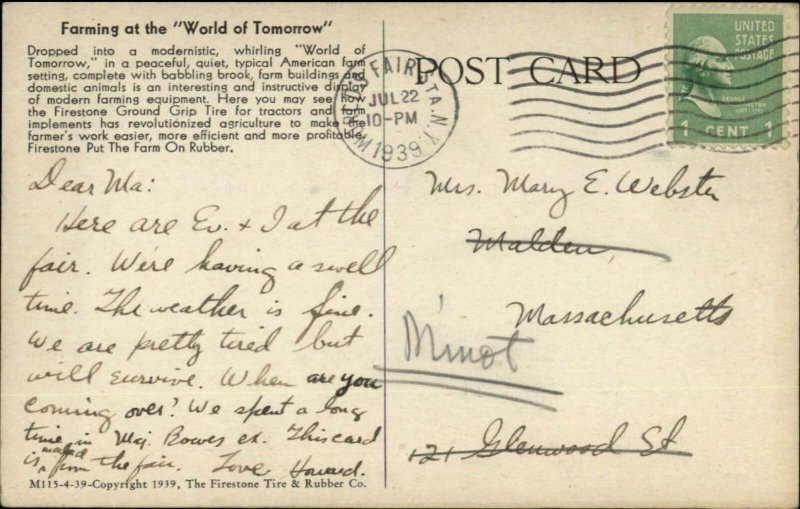 Farming at the "World of Tomorrow"
Dropped into a modernistic, whirling "World of
Tomorrow," in a peaceful, quiet, typical American farm
setting, complete with babbling brook, farm buildings and
domestic animals is an interesting and instructive display
of modern farming equipment. Here you may see how
the Firestone Ground Grip Tire for tractors and farm
implements has revolutionized agriculture to make the
farmer's work easier, more efficient and more profitable.
Firestone Put The Farm On Rubber.
Dear Ma:
Here are Ev. + I at the
fair. We're having a swell
time. The weather is fine.
We are pretty tired but
will survive. When are you
coming over? We spent a long
time in Maj. Bowes ex. This card
is mailed from the fair. Love Howard.
M115-4-39-Copyright 1939, The Firestone Tire & Rubber Co.
POST CARD
WORLD'S FAIR STA. N.Y.
JUL 22
10-PM
1939
UNITED
STATES
POSTAGE
GEORGE
WASHINGTON
1 CENT 1
Mrs. Mary E. Webster
Malden,
Massachusetts
Minot
121 Glenwood St